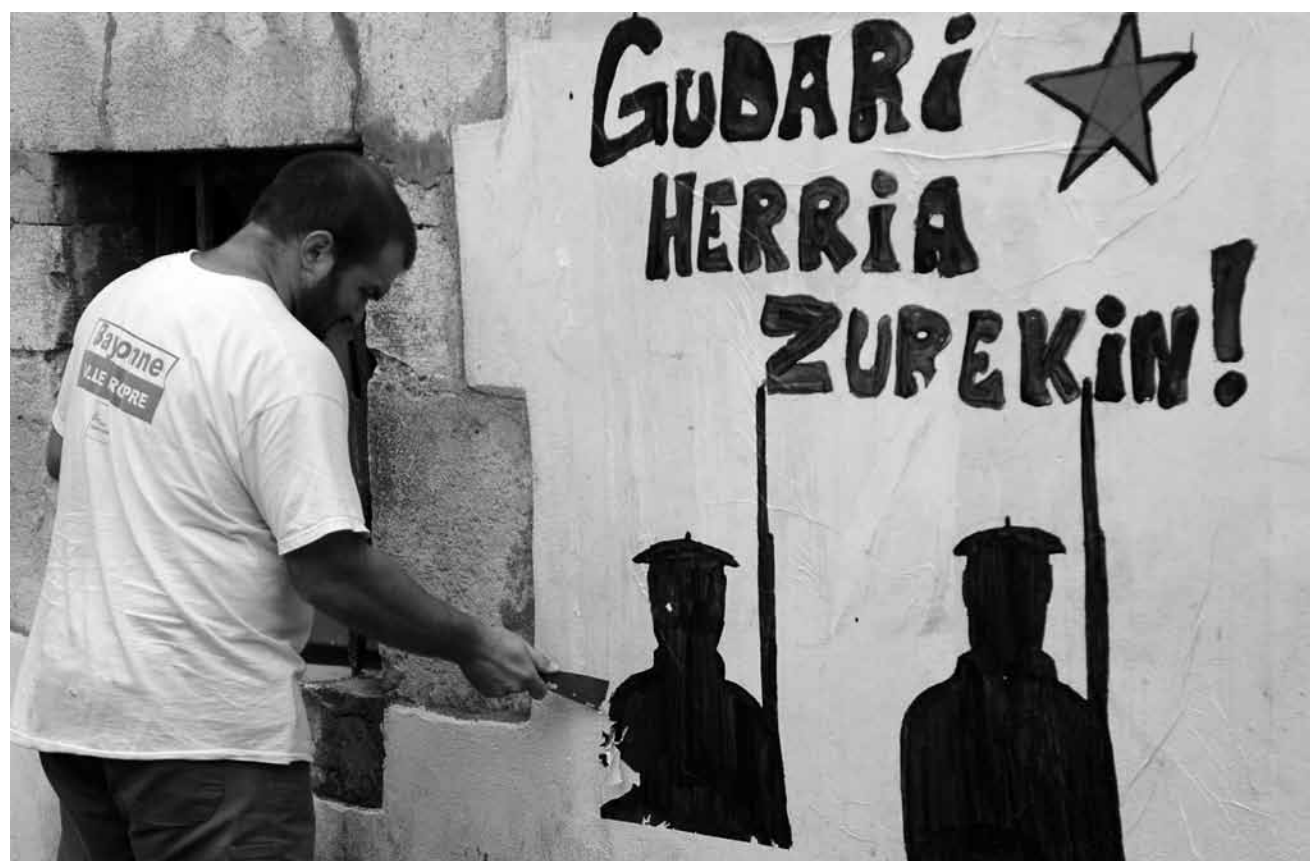 GUDARi
HERRiA
ZUREKiN!
Bayonne
VILLE PROPRE